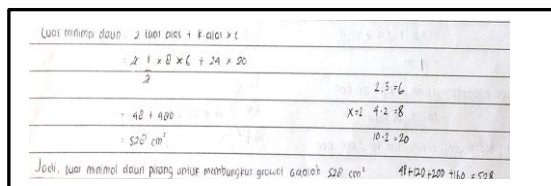 Luas minimal daun : 2 luas alas + k.alas x t
= 2 1/2 x 8 x 6 + 24 x 20
2.3 = 6
= 48 + 480 x=2 4.2 = 8
= 528 cm² 10.2 = 20
Jadi, luas minimal daun pisang untuk membungkus growol adalah 528 cm² 48+120+200+160 = 528